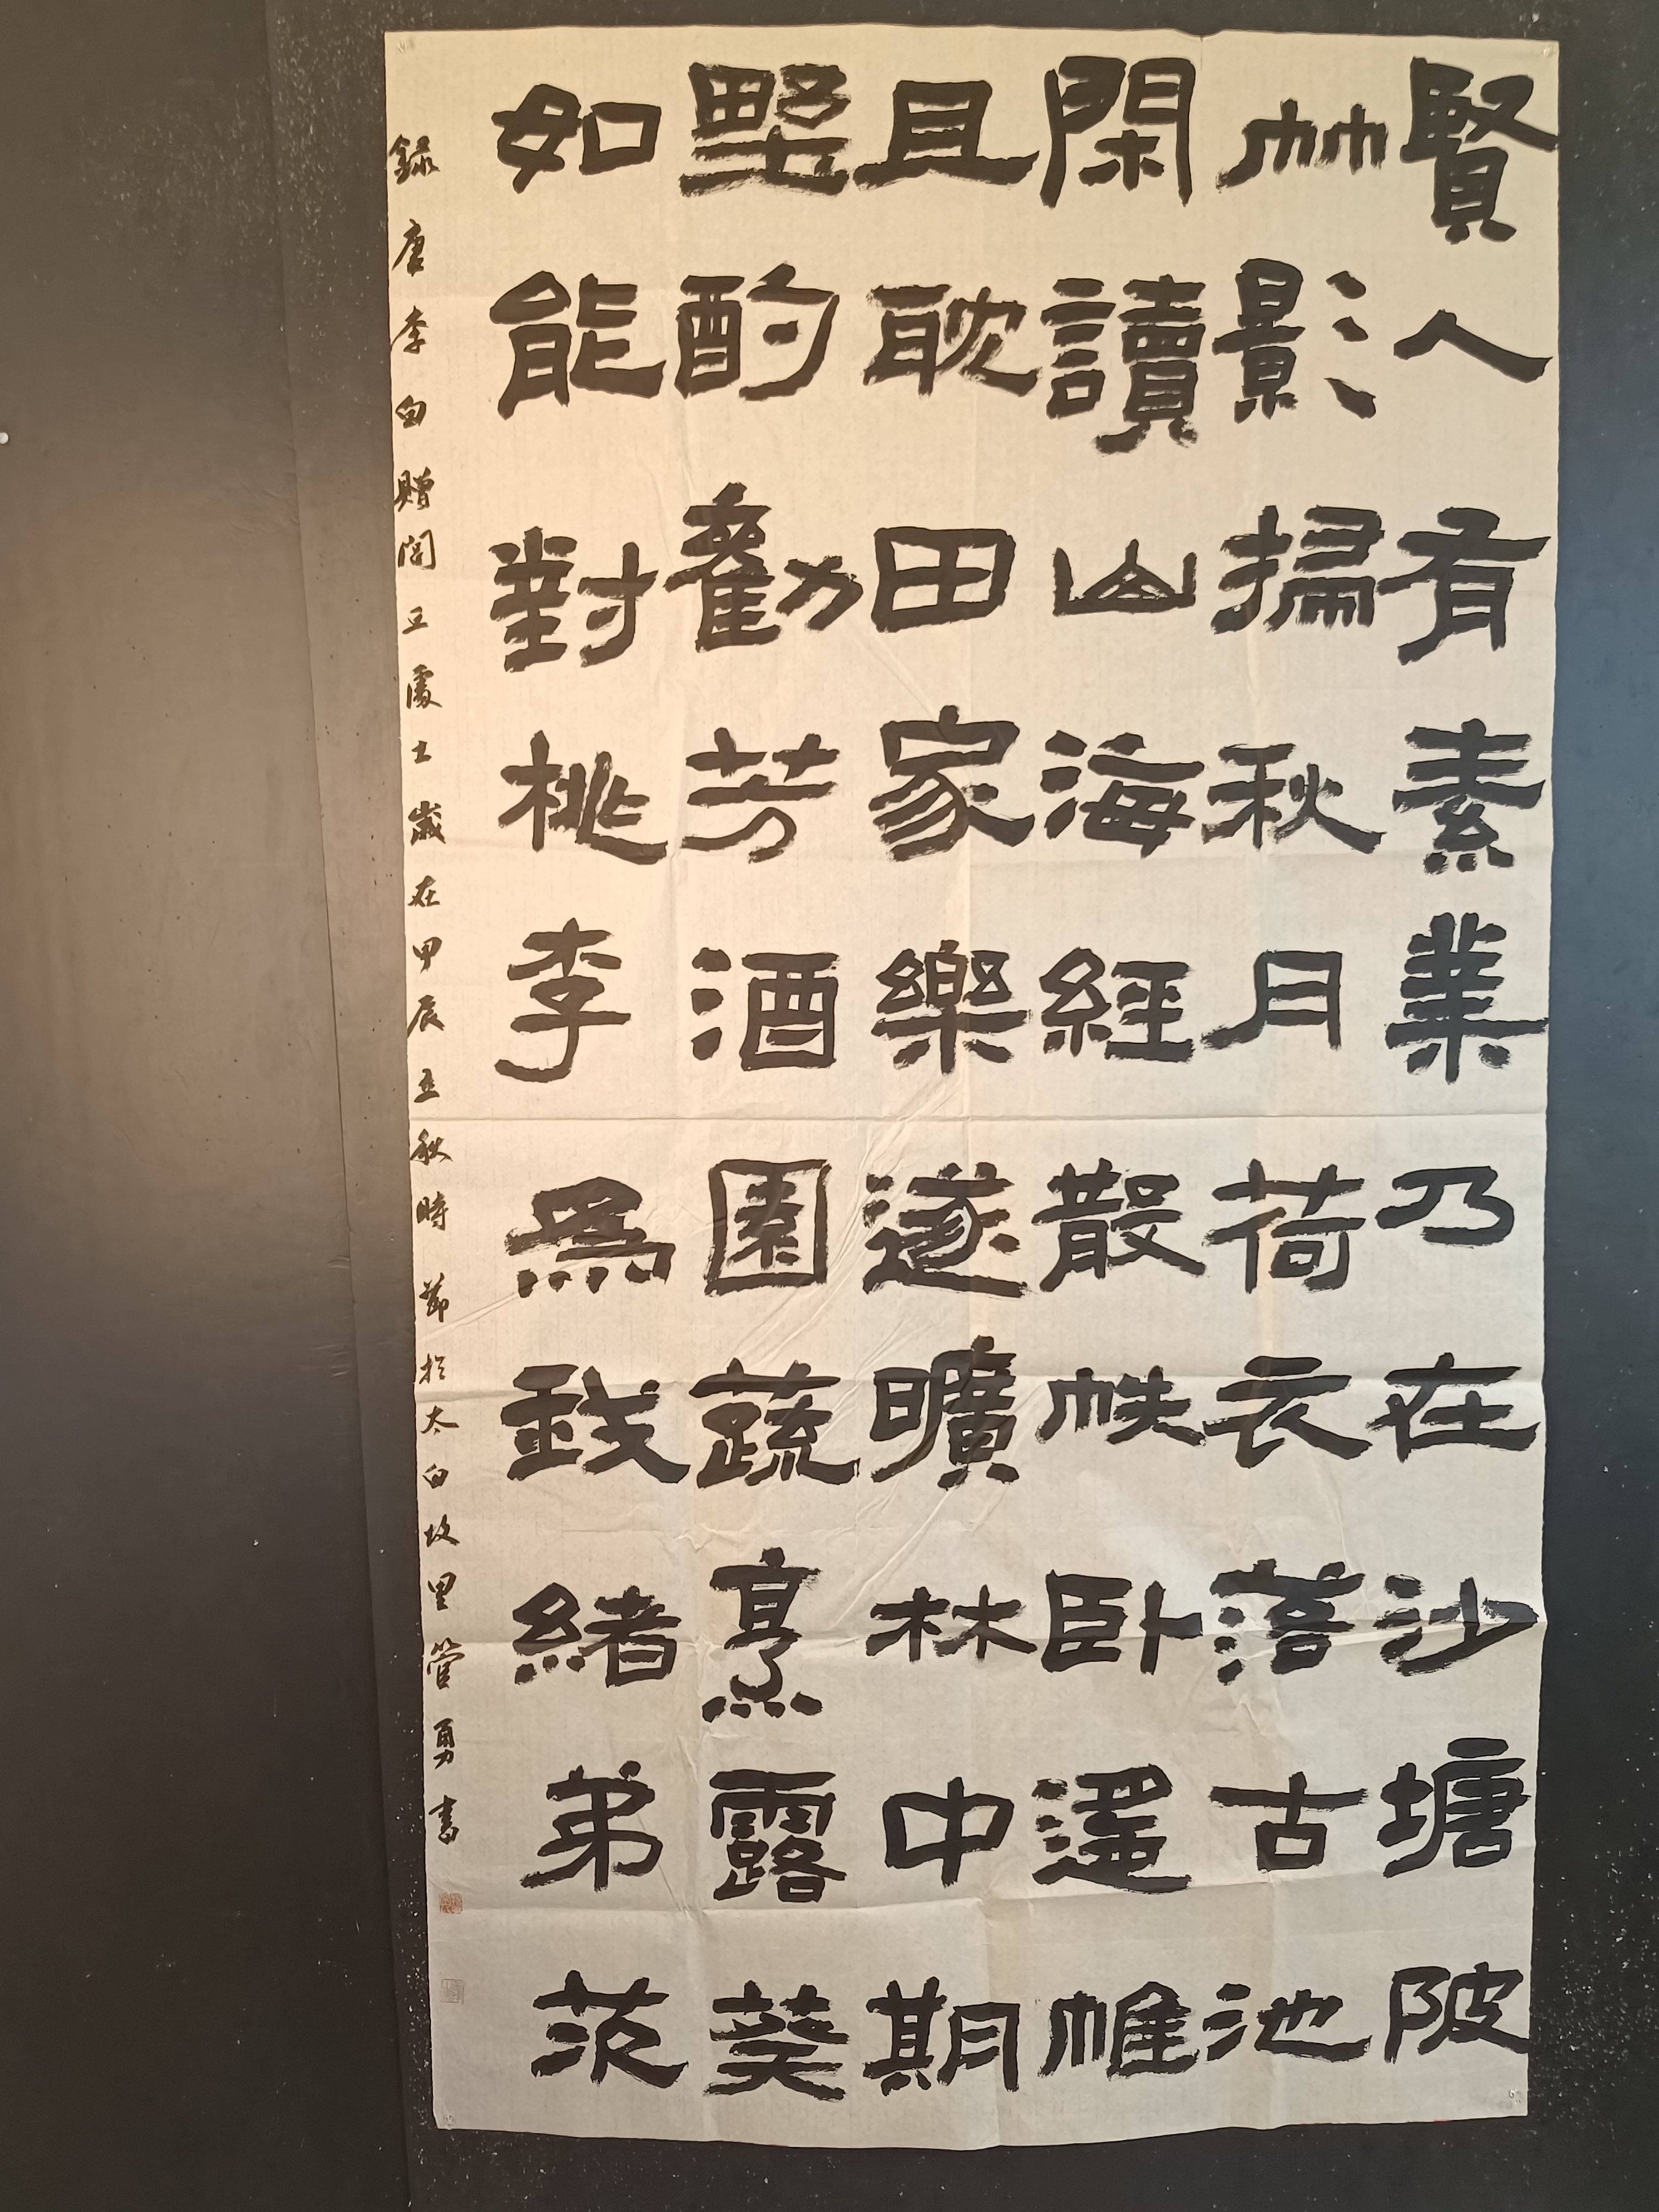 賢人有素業乃在沙塘陂
竹影掃秋月荷衣落古池
閑讀山海經散帙臥遥帷
且耽田家樂遂曠林中期
野酌勸芳酒園蔬烹露葵
如能對桃李為錢緒弟茨
録唐李白贈閭丘處士歲在甲辰立秋時節於太白故里管勇書